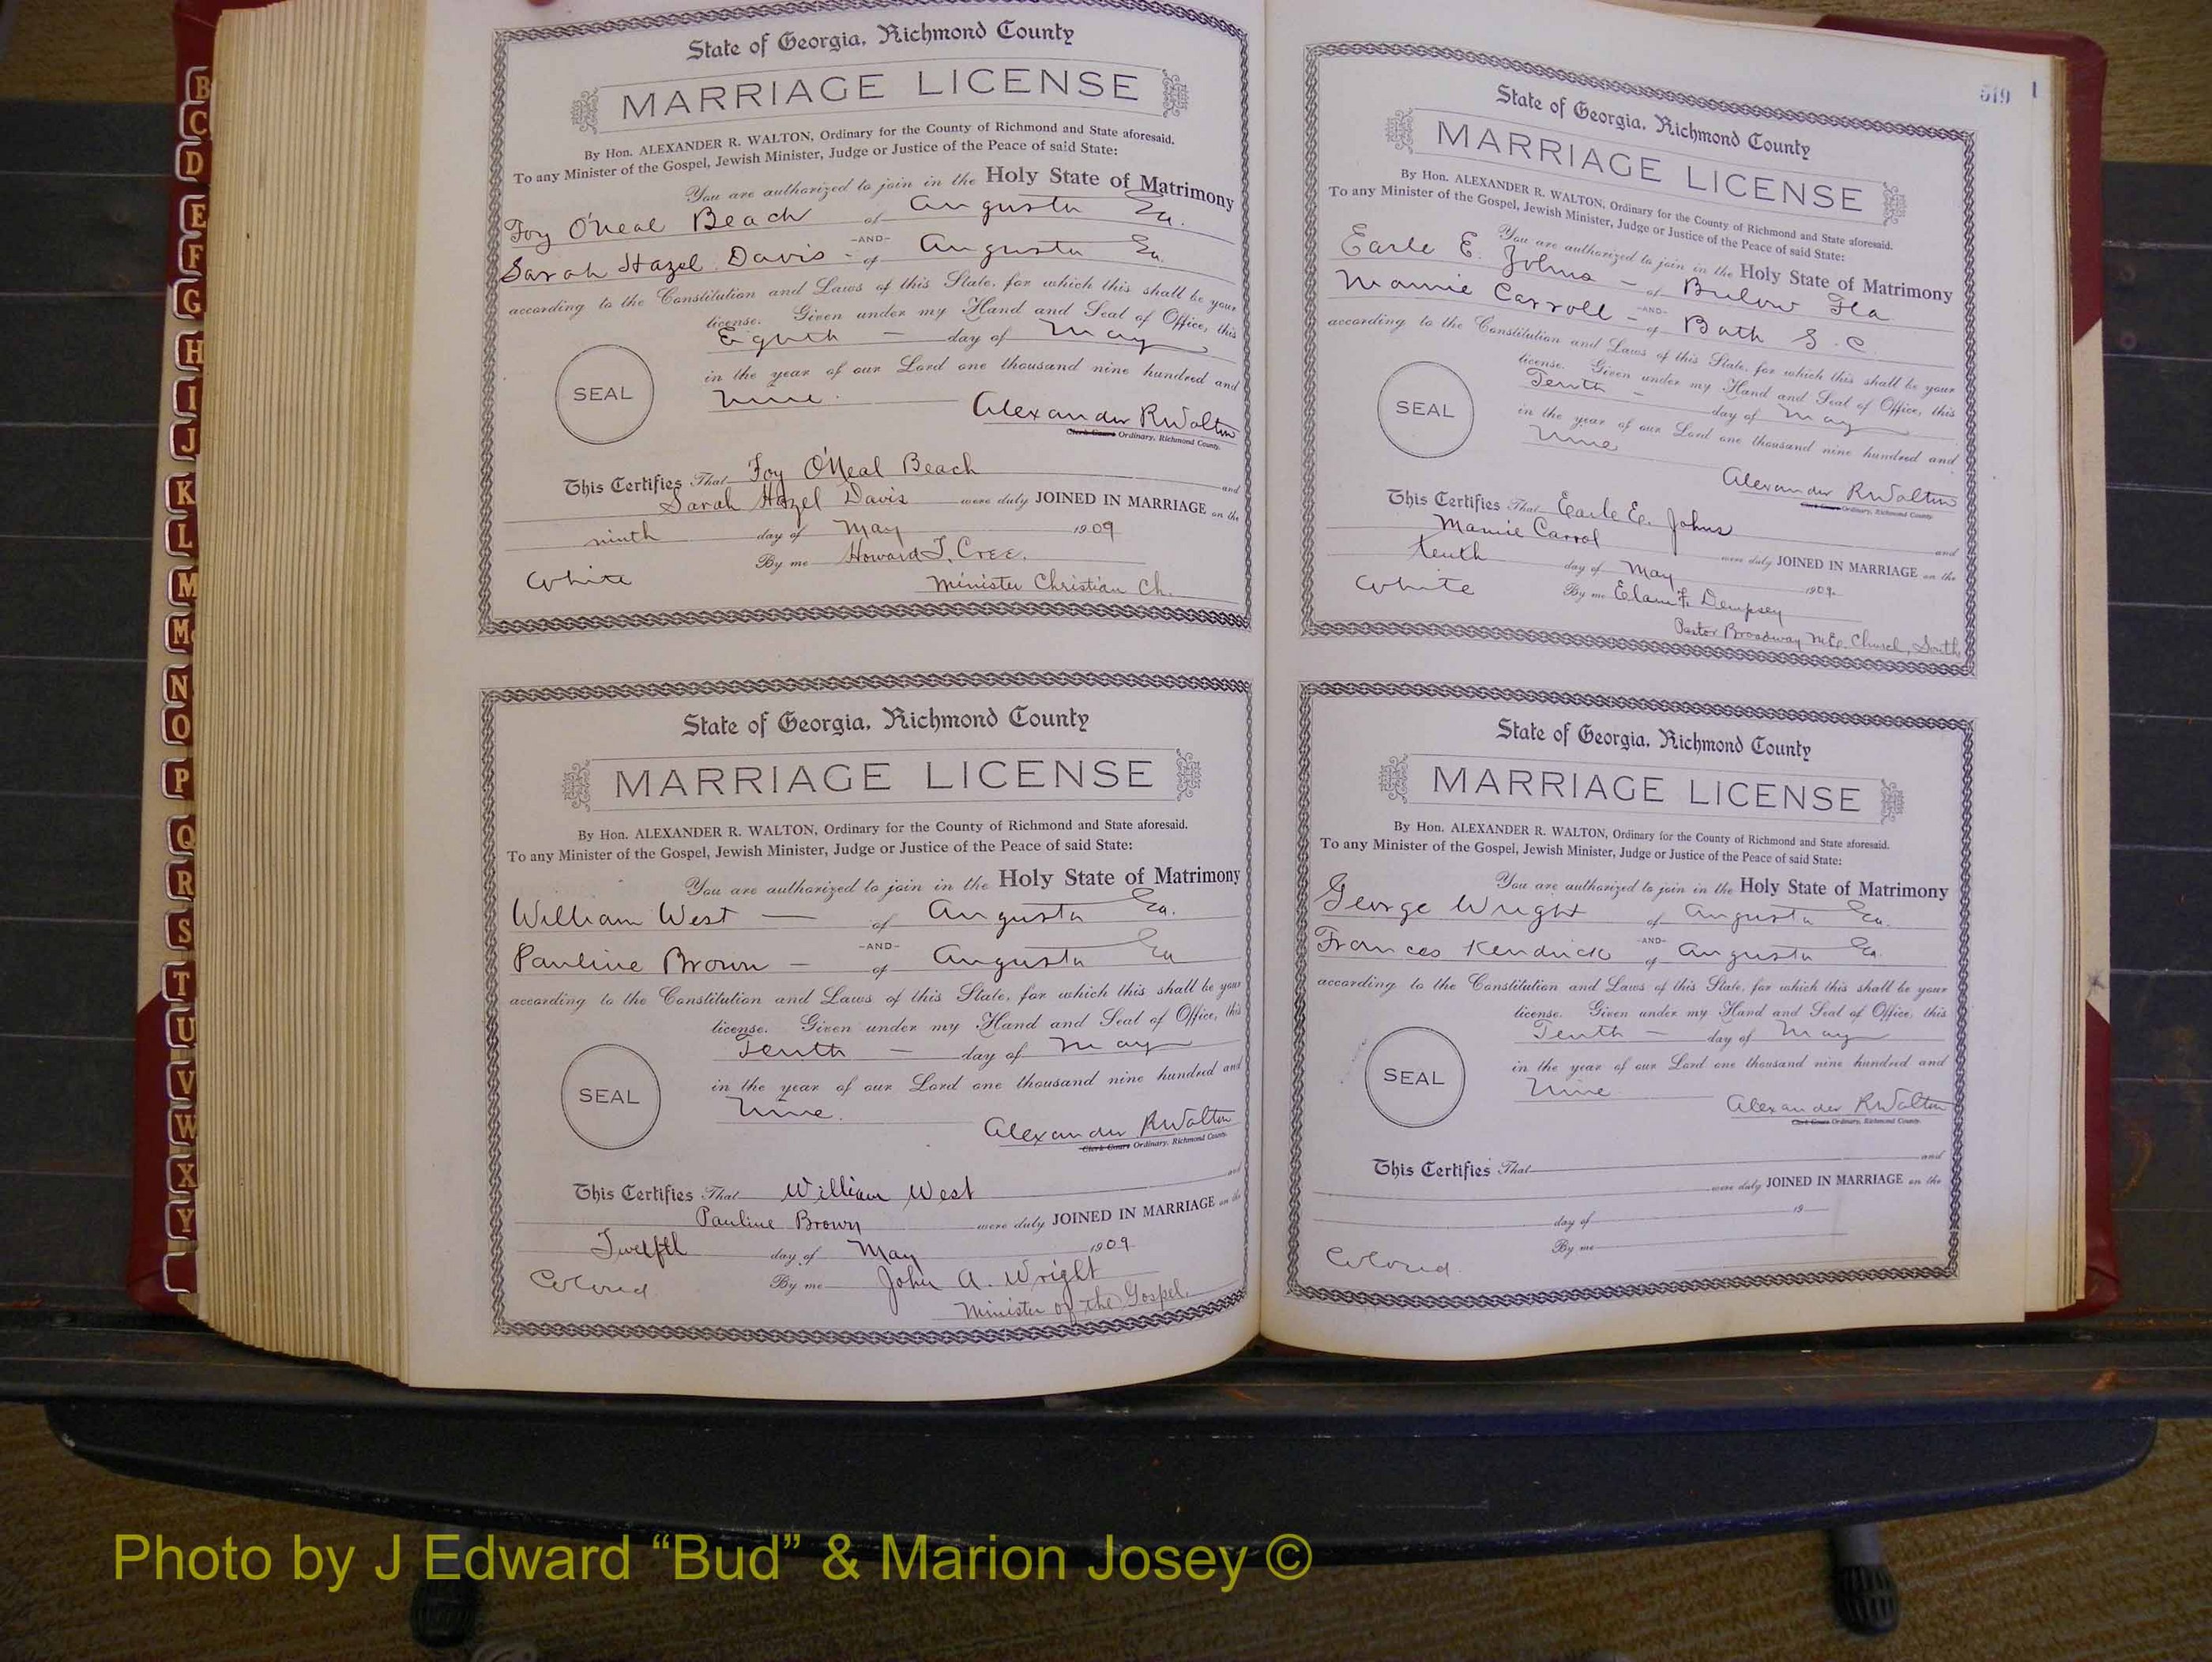 B
C
D
E
F
G
H
I
J
K
L
M
Mc
N
O
P
Q
R
S
T
U
V
W
X
Y
State of Georgia, Richmond County
MARRIAGE LICENSE
By Hon. ALEXANDER R. WALTON, Ordinary for the County of Richmond and State aforesaid.
To any Minister of the Gospel, Jewish Minister, Judge or Justice of the Peace of said State:
You are authorized to join in the Holy State of Matrimony
Foy O'Neal Beach of Augusta Ga.
-AND-
Sarah Hazel Davis - of Augusta Ga.
according to the Constitution and Laws of this State, for which this shall be your
license. Given under my Hand and Seal of Office, this
Eighth - day of May
in the year of our Lord one thousand nine hundred and
SEAL
Nine.
Alexander R Walton
Clerk Court Ordinary, Richmond County.
This Certifies That Foy O'Neal Beach and
Sarah Hazel Davis were duly JOINED IN MARRIAGE on the
ninth day of May 1909
By me Howard T. Cree.
White
Minister Christian Ch.
State of Georgia, Richmond County
MARRIAGE LICENSE
By Hon. ALEXANDER R. WALTON, Ordinary for the County of Richmond and State aforesaid.
To any Minister of the Gospel, Jewish Minister, Judge or Justice of the Peace of said State:
You are authorized to join in the Holy State of Matrimony
William West - of Augusta Ga.
-AND-
Pauline Brown - of Augusta Ga
according to the Constitution and Laws of this State, for which this shall be your
license. Given under my Hand and Seal of Office, this
Tenth - day of May
in the year of our Lord one thousand nine hundred and
SEAL
Nine.
Alexander R Walton
Clerk Court Ordinary, Richmond County.
This Certifies That William West and
Pauline Brown were duly JOINED IN MARRIAGE on the
Twelfth day of May 1909
Colored
By me John A. Wright
Minister of the Gospel.
519 1
State of Georgia, Richmond County
MARRIAGE LICENSE
By Hon. ALEXANDER R. WALTON, Ordinary for the County of Richmond and State aforesaid.
To any Minister of the Gospel, Jewish Minister, Judge or Justice of the Peace of said State:
You are authorized to join in the Holy State of Matrimony
Earle E. Johns - of Bulow Fla
-AND-
Mamie Carroll - of Bath S. C.
according to the Constitution and Laws of this State, for which this shall be your
license. Given under my Hand and Seal of Office, this
Tenth - day of May
in the year of our Lord one thousand nine hundred and
SEAL
Nine
Alexander R Walton
Clerk Court Ordinary, Richmond County
This Certifies That Earle E. Johns and
Mamie Carrol were duly JOINED IN MARRIAGE on the
tenth day of May 1909.
White
By me Elam F. Dempsey
Pastor Broadway M.E. Church, South.
State of Georgia, Richmond County
MARRIAGE LICENSE
By Hon. ALEXANDER R. WALTON, Ordinary for the County of Richmond and State aforesaid.
To any Minister of the Gospel, Jewish Minister, Judge or Justice of the Peace of said State:
You are authorized to join in the Holy State of Matrimony
George Wright of Augusta Ga.
-AND-
Frances Kendrick of Augusta Ga.
according to the Constitution and Laws of this State, for which this shall be your
license. Given under my Hand and Seal of Office, this
Tenth - day of May
in the year of our Lord one thousand nine hundred and
SEAL
Nine
Alexander R Walton
Clerk Court Ordinary, Richmond County.
This Certifies That and
were duly JOINED IN MARRIAGE on the
day of 19
By me
Colored
Photo by J Edward “Bud” & Marion Josey ©